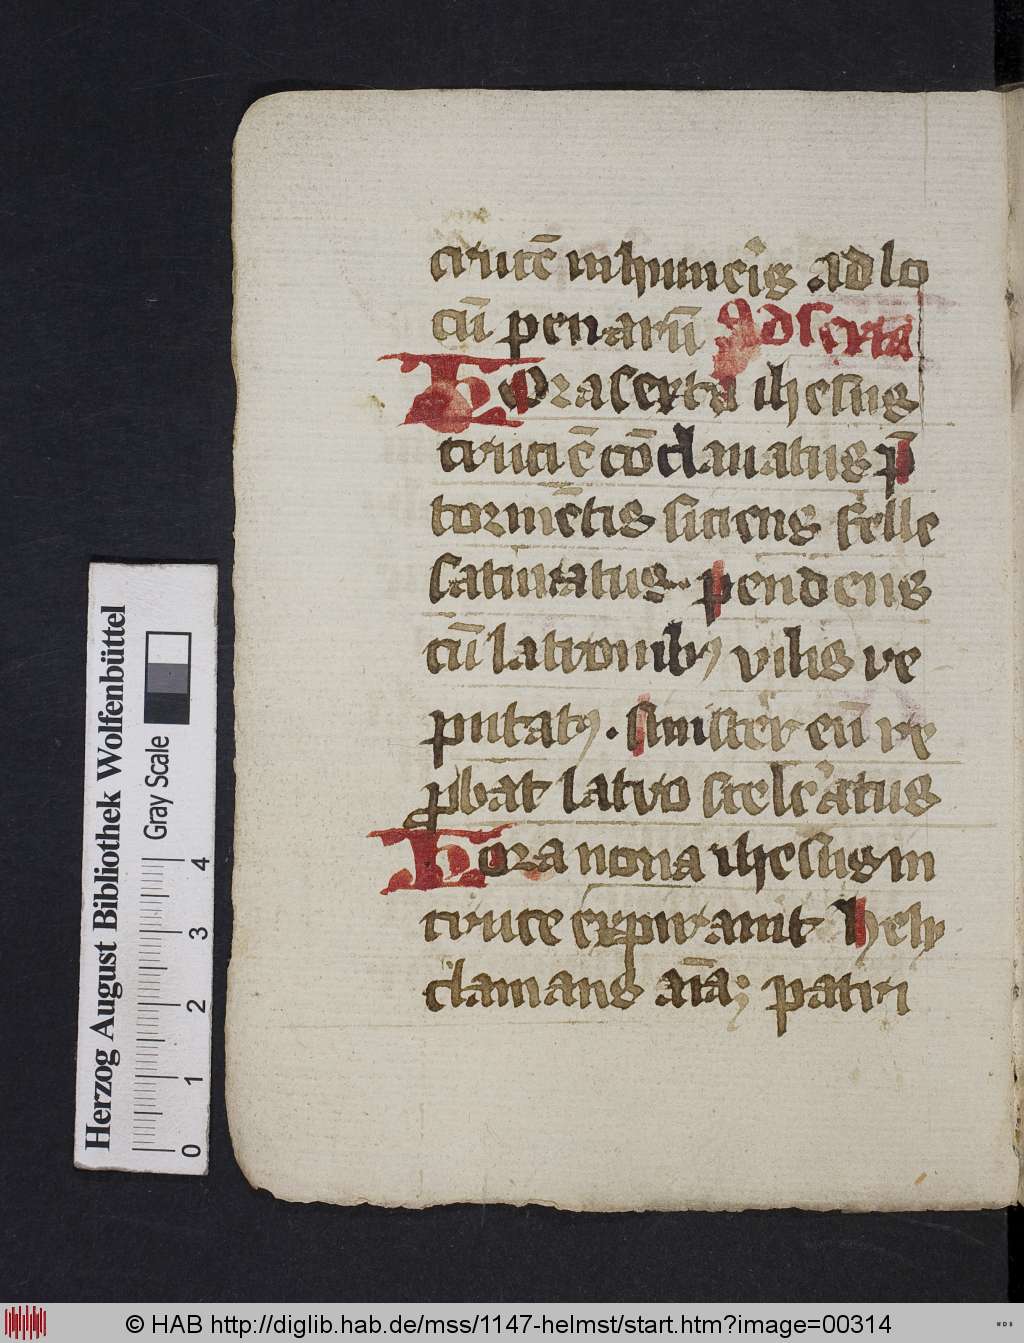 crucē in humeris ad lo
cū penarū Ad sexta
Hora sexta ihesus
cruci ē cōclauatus ꝑ
tormētis siciens felle
saturatus pendens
cū latronibꝯ vilis re
putatꝯ . sinister eū re
ꝓbat latro sceleratus
Hora nona ihesus in
cruce expirauit hely
clamans aīaꝫ patri
Herzog August Bibliothek Wolfenbüttel
Gray Scale
0 1 2 3 4
© HAB http://diglib.hab.de/mss/1147-helmst/start.htm?image=00314
WDB